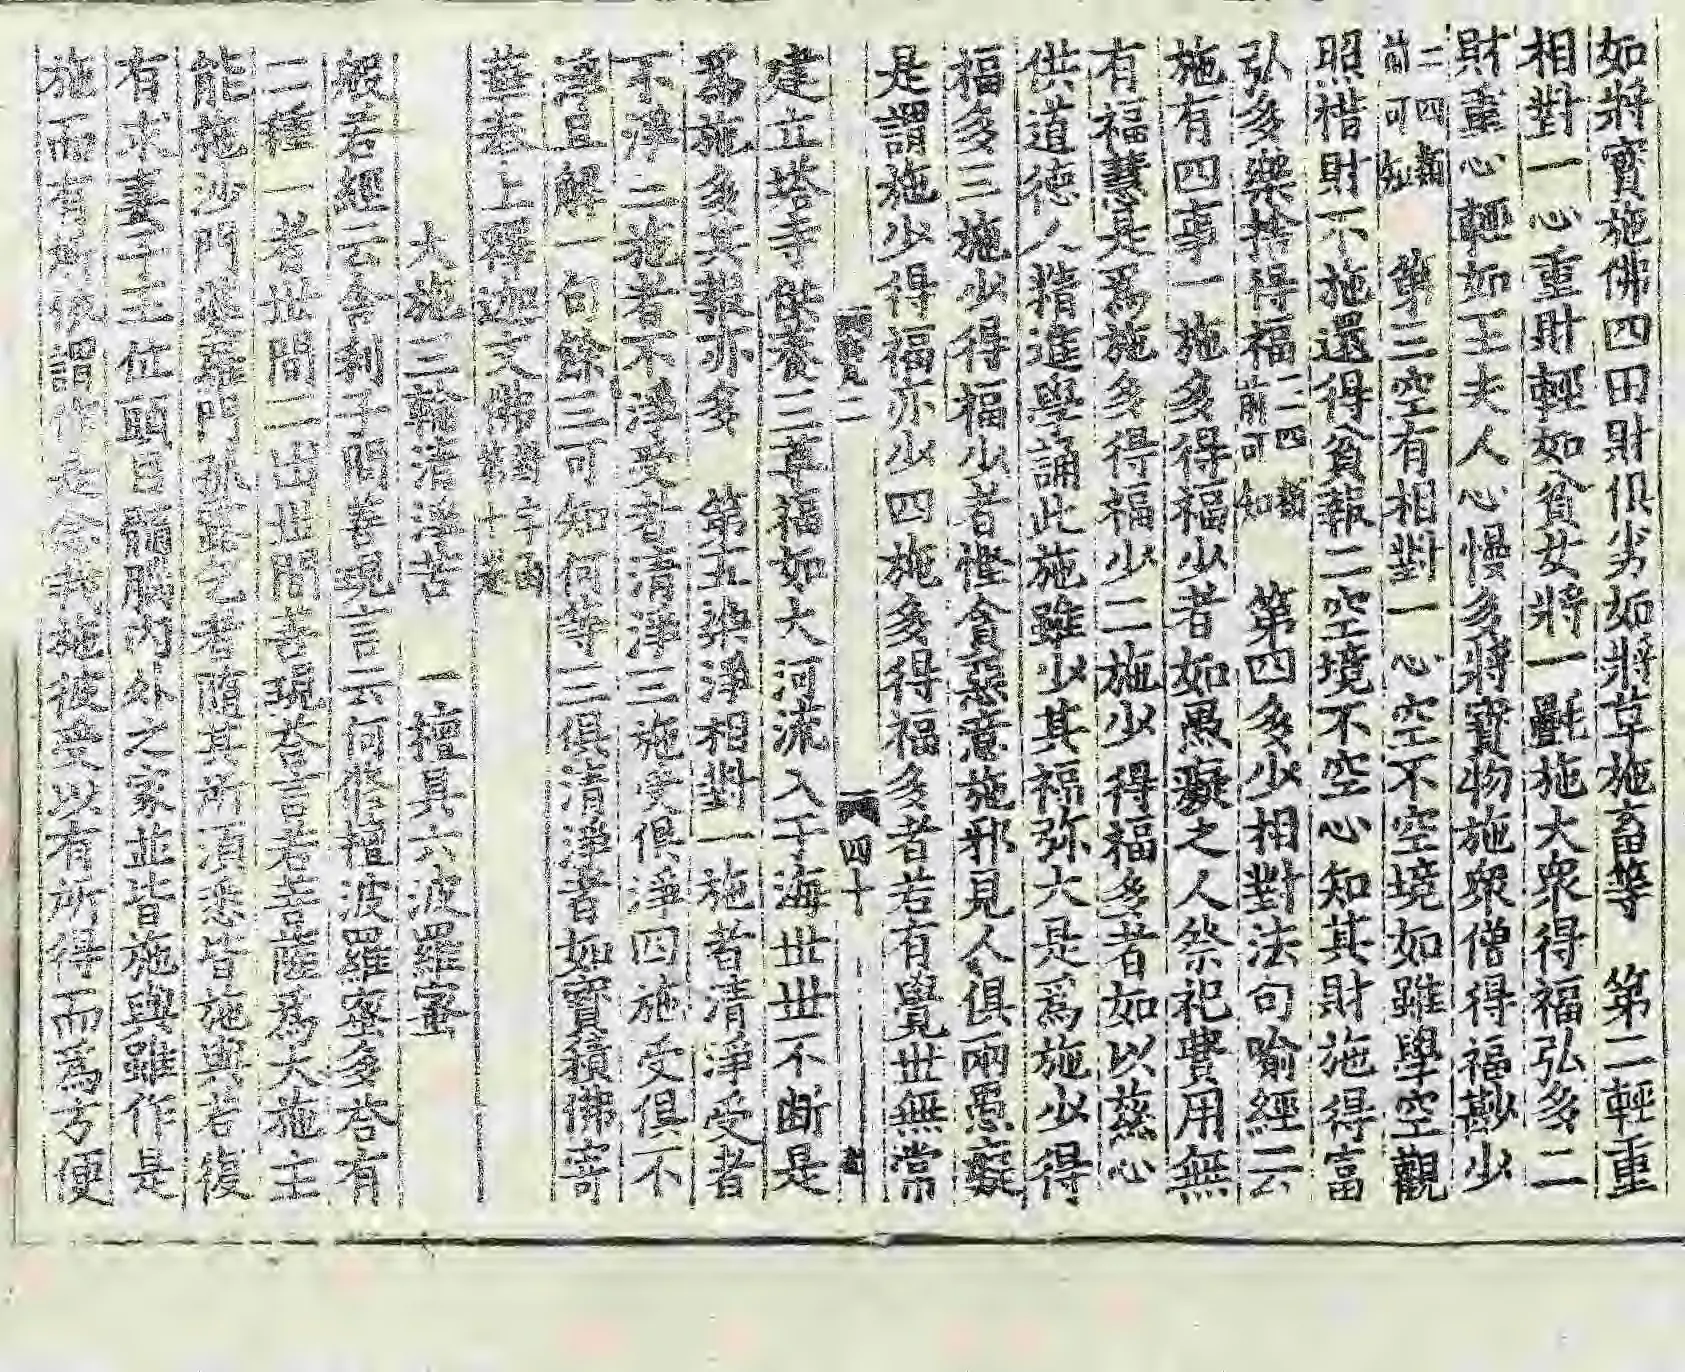 如將寶施佛四田財俱劣如將草施畜等　第二輕重
相對一心重財輕如貧女將一氎施大眾得福弘多二
財重心輕如王夫人心慢多將寶物施眾僧得福尠少
二四前可知　第三空有相對一心空不空境如雖學空觀
照惜財不施還得貧報二空境不空心知其財施得富
弘多樂捨得福二四前可知　第四多少相對法句喻經云
施有四事一施多得福少者如愚癡之人祭祀費用無
有福慧是為施多得福少二施少得福多者如以慈心
供道德人精進學誦此施雖少其福弥大是為施少得
福多三施少得福少者慳貪惡意施邪見人俱兩愚癡
是謂施少得福亦少四施多得福多者若有覺世無常
四十
建立塔寺供養三尊福如大河流入于海世世不斷是
為施多其報亦多　第五染淨相對一施者清淨受者
不淨二施者不淨受者清淨三施受俱淨四施受俱不
淨且解一句餘三可知何等三俱清淨者如寶積佛寄
華奉上釋迦文佛
大施三輪清淨　一檀具六波羅蜜
般若經云舍利子問善現言云何修檀波羅蜜多荅有
二種一者世間二出世間善現荅言若菩薩為大施主
能施沙門婆羅門孤露乞者隨其所須悉皆施與若復
有求妻子王位頭目髓腦內外之家並皆施與雖作是
施而有所依謂作是念我施彼受以有所得而為方便